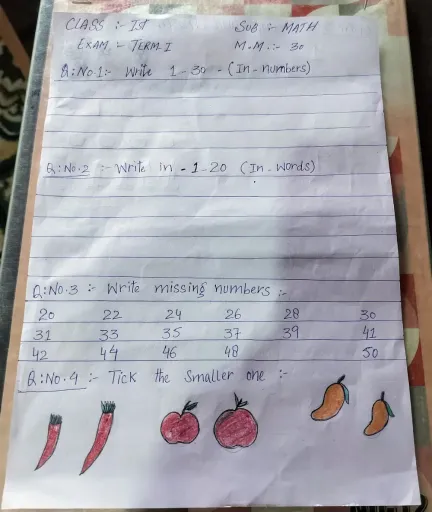 CLASS :- Ist SUB :- MATH
EXAM :- TERM-I M.M. :- 30
Q:No.1:- Write 1-30-(In-numbers)
Q:No.2 :- Write in -1-20 (In-words)
Q:No.3 :- Write missing numbers :-
20 22 24 26 28 30
31 33 35 37 39 41
42 44 46 48 50
Q:No.4 :- Tick the smaller one :-